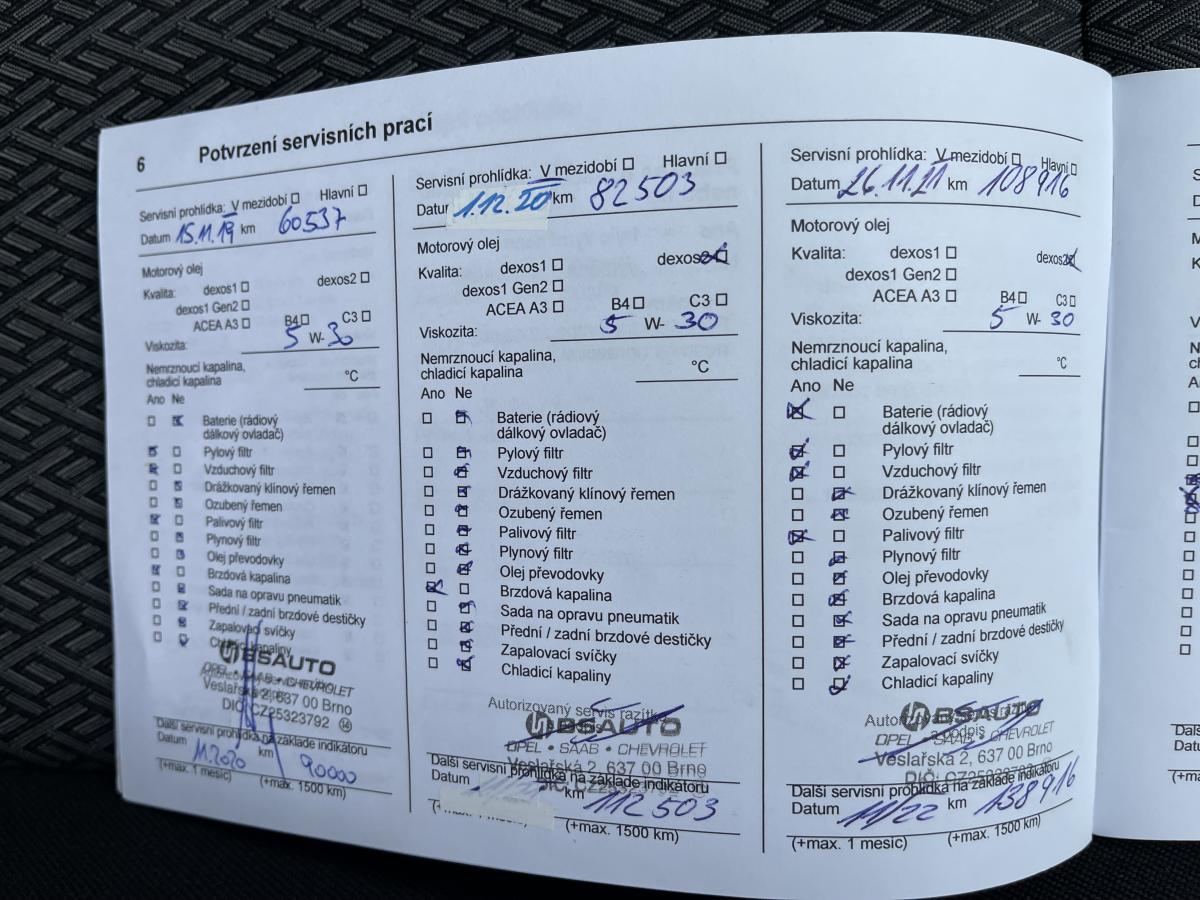 6 Potvrzení servisních prací
Servisní prohlídka: V mezidobí ☐ Hlavní ☐
Datum 15.11.19 km 60537
Motorový olej
Kvalita: dexos1 ☐ dexos2 ☐
dexos1 Gen2 ☐
ACEA A3 ☐ B4 ☐ C3 ☐
Viskozita: 5 W- 30
Nemrznoucí kapalina,
chladicí kapalina °C
Ano Ne
Baterie (rádiový
dálkový ovladač)
Pylový filtr
Vzduchový filtr
Drážkovaný klínový řemen
Ozubený řemen
Palivový filtr
Plynový filtr
Olej převodovky
Brzdová kapalina
Sada na opravu pneumatik
Přední / zadní brzdové destičky
Zapalovací svíčky
Chladicí kapaliny
BSAUTO
OPEL • SAAB • CHEVROLET
Veslařská 2, 637 00 Brno
DIČ: CZ25323792 14
Další servisní prohlídka na základě indikátoru
Datum 11.2020 km 90000
(+max. 1 mesic) (+max. 1500 km)
Servisní prohlídka: V mezidobí ☐ Hlavní ☐
Datur 1.12.20 km 82503
Motorový olej
Kvalita: dexos1 ☐ dexos2
dexos1 Gen2 ☐
ACEA A3 ☐ B4 ☐ C3 ☐
Viskozita: 5 W- 30
Nemrznoucí kapalina,
chladicí kapalina °C
Ano Ne
Baterie (rádiový
dálkový ovladač)
Pylový filtr
Vzduchový filtr
Drážkovaný klínový řemen
Ozubený řemen
Palivový filtr
Plynový filtr
Olej převodovky
Brzdová kapalina
Sada na opravu pneumatik
Přední / zadní brzdové destičky
Zapalovací svíčky
Chladicí kapaliny
Autorizovaný servis razítko
BSAUTO
OPEL • SAAB • CHEVROLET
Veslařská 2, 637 00 Brno
Další servisní prohlídka na základě indikátoru
Datum km 112503
(+max. 1500 km)
Servisní prohlídka: V mezidobí ☐ Hlavní ☐
Datum 26.11.21 km 108916
Motorový olej
Kvalita: dexos1 ☐ dexos2
dexos1 Gen2 ☐
ACEA A3 ☐ B4 ☐ C3 ☐
Viskozita: 5 W- 30
Nemrznoucí kapalina,
chladicí kapalina °C
Ano Ne
Baterie (rádiový
dálkový ovladač)
Pylový filtr
Vzduchový filtr
Drážkovaný klínový řemen
Ozubený řemen
Palivový filtr
Plynový filtr
Olej převodovky
Brzdová kapalina
Sada na opravu pneumatik
Přední / zadní brzdové destičky
Zapalovací svíčky
Chladicí kapaliny
BSAUTO
OPEL • SAAB • CHEVROLET
podpis
Veslařská 2, 637 00 Brno
Další servisní prohlídka na základě indikátoru
Datum 11/22 km 138916
(+max. 1 mesic) (+max. 1500 km)